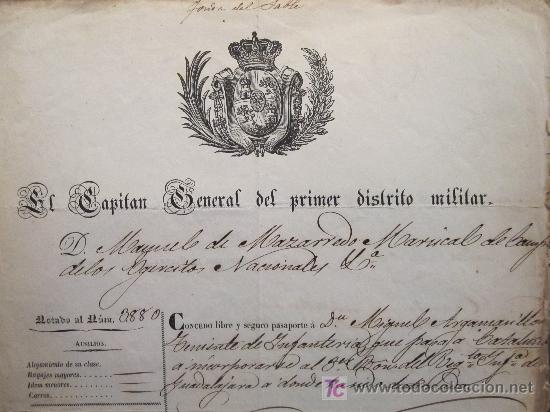 Fonda del Sable
El Capitan General del primer distrito militar.
D. Manuel de Mazarredo Mariscal de Camp
de los Egercitos Nacionales &ª
Notado al Núm. 3880
AUXILIOS.
Alojamiento de su clase.
Bagajes mayores.
Idem menores.
Carros.
CONCEDO libre y seguro pasaporte á Dn Miguel
Teniente de Infanteria que pasa a Cataluña
a incorporarse al 3er Bon del Regto Infa de
Guadalajara a donde
todocoleccion.net